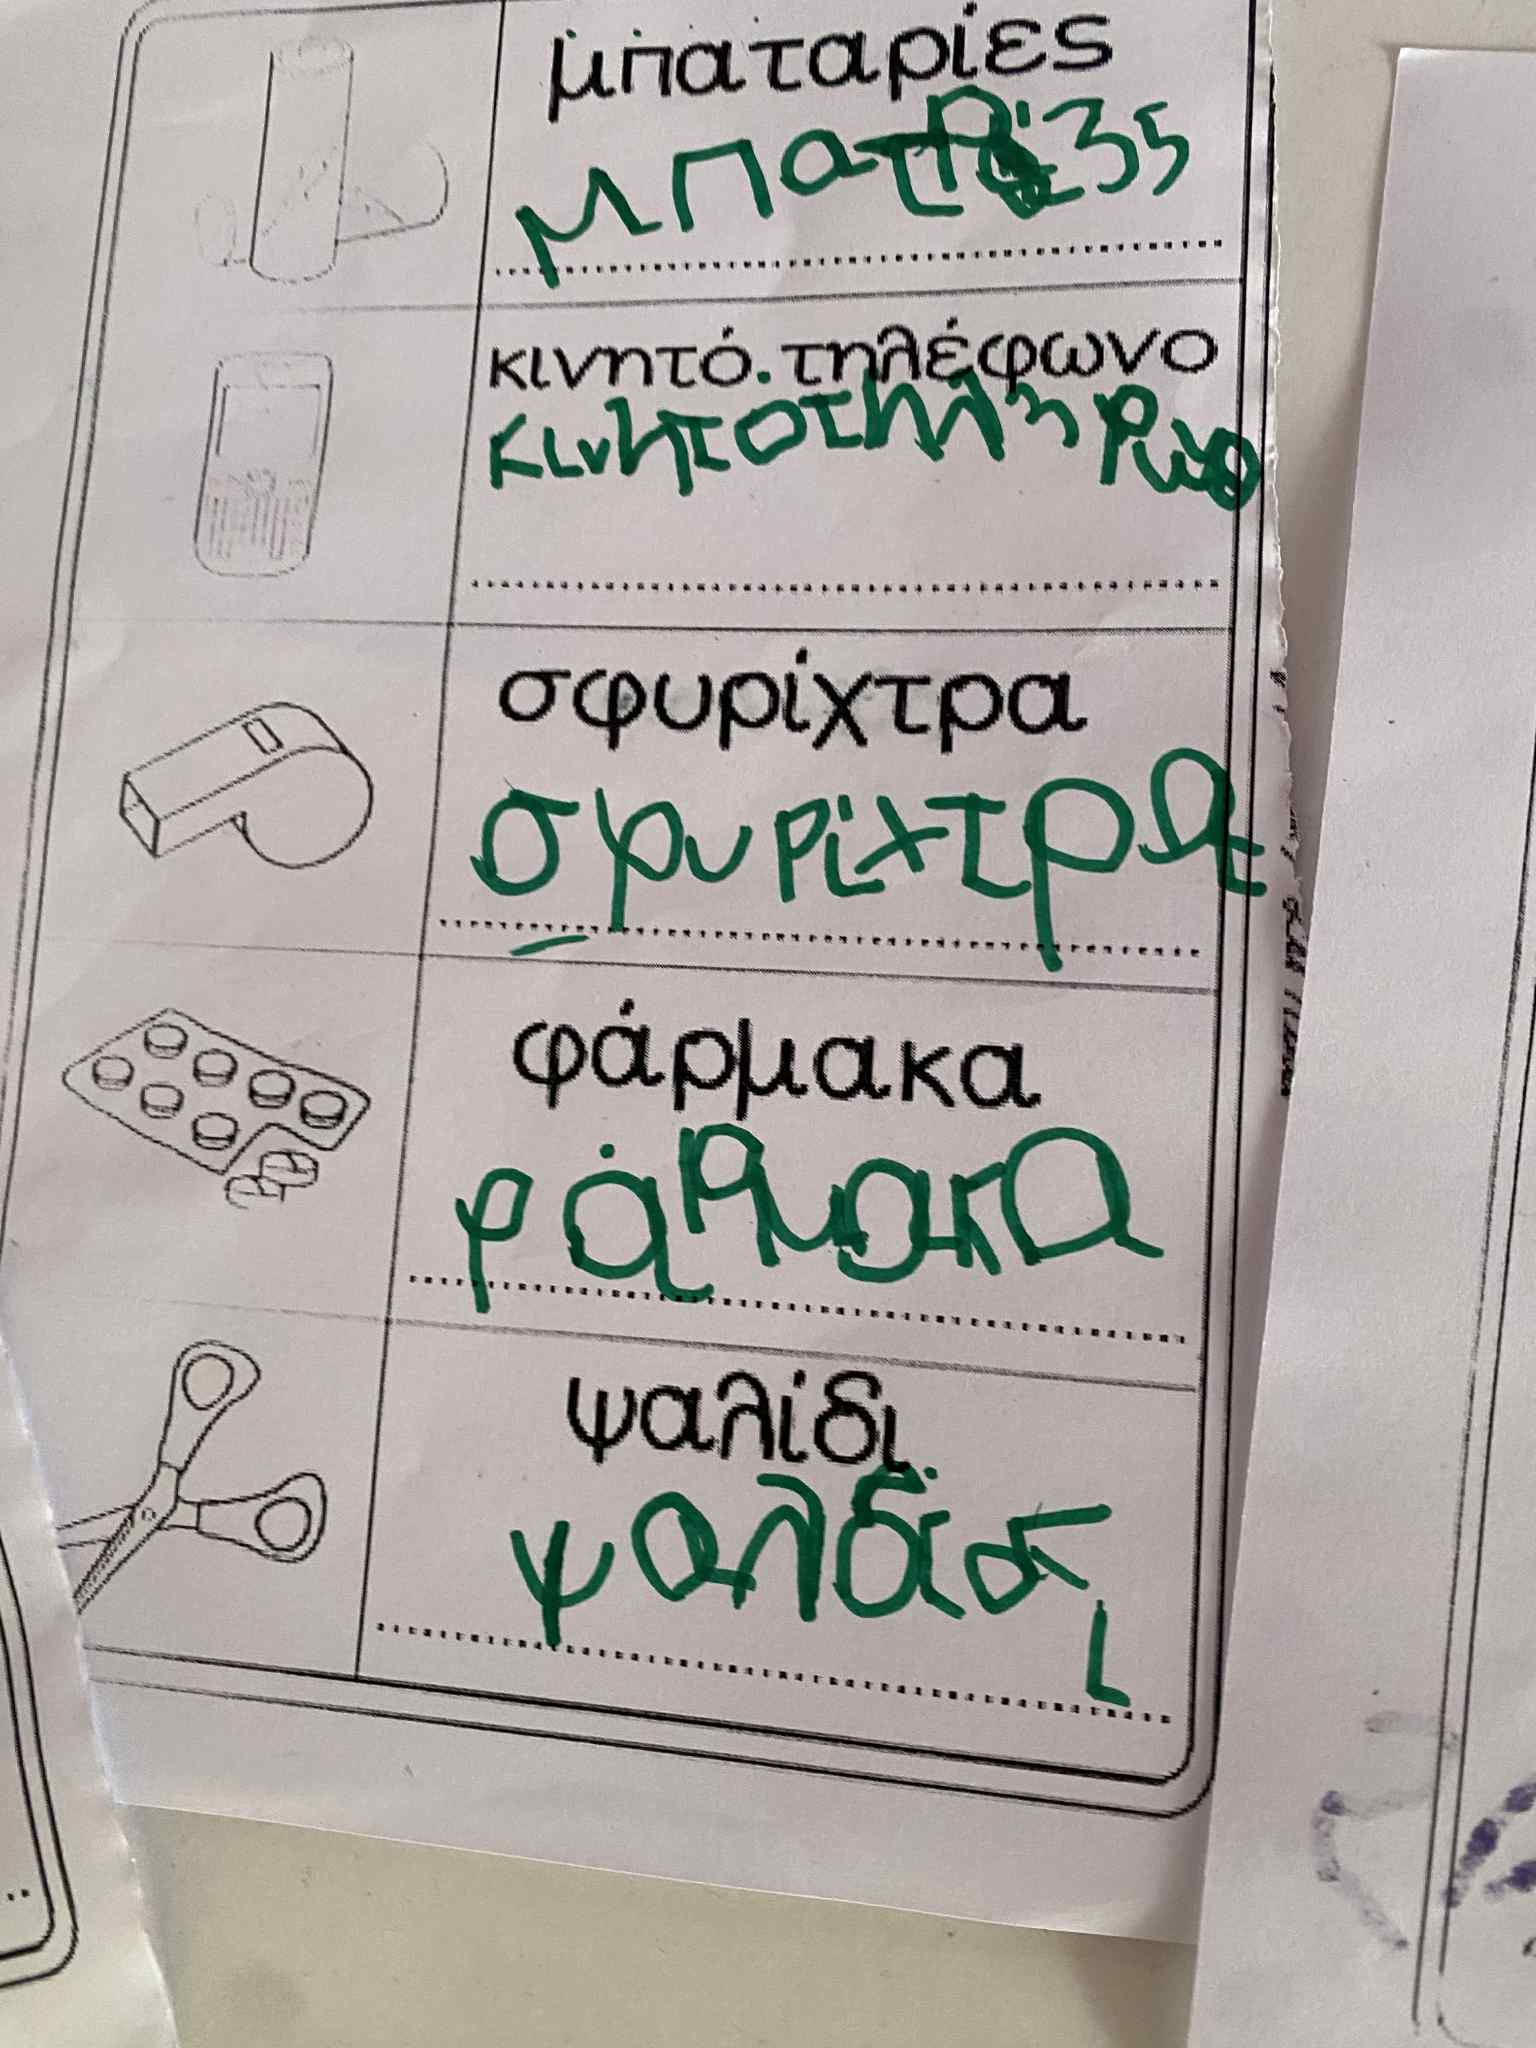 μπαταρίες
κινητό τηλέφωνο
κινητοτηλ
σφυρίχτρα
σφυρίχτρα
φάρμακα
ράρμακα
ψαλίδι